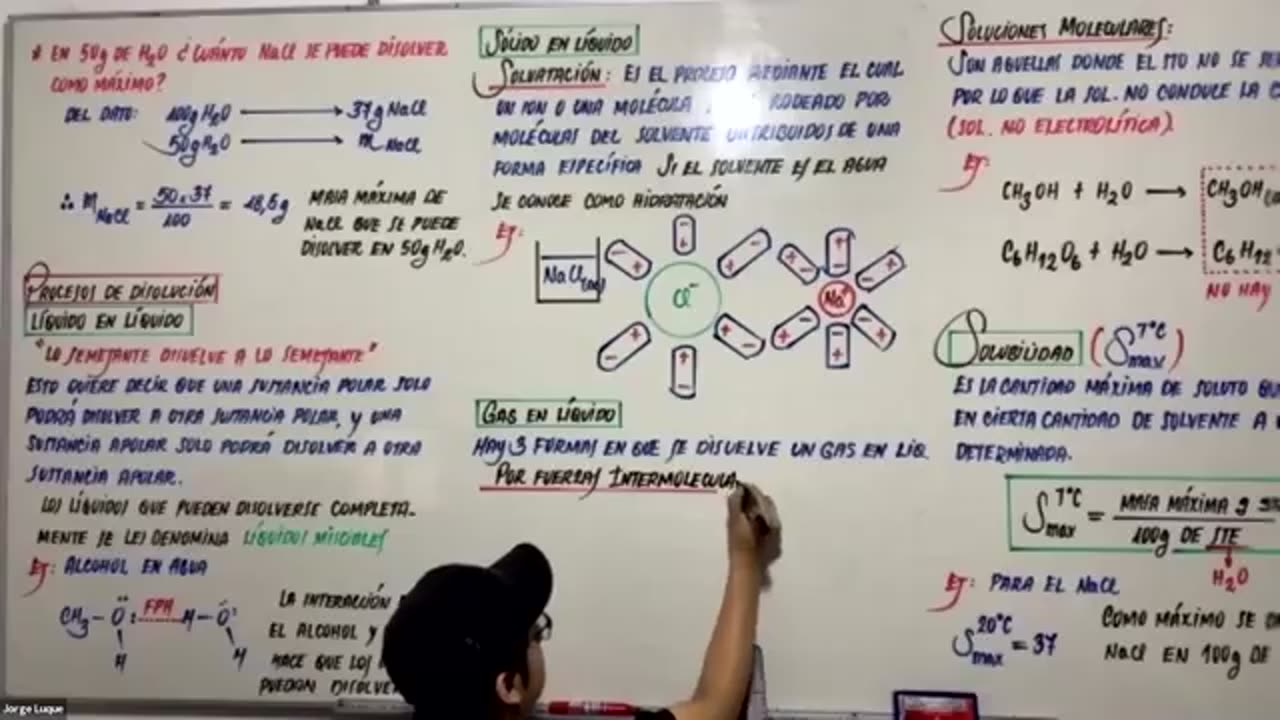 * EN 50g DE H₂O ¿CUÁNTO NaCl SE PUEDE DISOLVER
COMO MÁXIMO?
DEL DATO: 100g H₂O → 37g NaCl
50g H₂O → m NaCl
∴ m NaCl = 50.37 / 100 = 18,5g
MASA MÁXIMA DE
NaCl QUE SE PUEDE
DISOLVER EN 50g H₂O.
PROCESOS DE DISOLUCIÓN
LÍQUIDO EN LÍQUIDO
"LO SEMEJANTE DISUELVE A LO SEMEJANTE"
ESTO QUIERE DECIR QUE UNA SUSTANCIA POLAR SOLO
PODRÁ DISOLVER A OTRA SUSTANCIA POLAR, Y UNA
SUSTANCIA APOLAR SOLO PODRÁ DISOLVER A OTRA
SUSTANCIA APOLAR.
LOS LÍQUIDOS QUE PUEDEN DISOLVERSE COMPLETA-
MENTE SE LES DENOMINA LÍQUIDOS MISCIBLES
EJ: ALCOHOL EN AGUA
CH₃-O: FPH H-O:
H H
LA INTERACCIÓN
EL ALCOHOL Y
HACE QUE LOS
PUEDAN DISOLVE
SÓLIDO EN LÍQUIDO
SOLVATACIÓN: ES EL PROCESO MEDIANTE EL CUAL
UN ION O UNA MOLÉCULA RODEADO POR
MOLÉCULAS DEL SOLVENTE DISTRIBUIDOS DE UNA
FORMA ESPECÍFICA SI EL SOLVENTE ES EL AGUA
SE CONOCE COMO HIDRATACIÓN
EJ:
NaCl(ac)
Cl⁻
Na⁺
GAS EN LÍQUIDO
HAY 3 FORMAS EN QUE SE DISUELVE UN GAS EN LIQ.
POR FUERZAS INTERMOLECULA
SOLUCIONES MOLECULARES:
SON AQUELLAS DONDE EL STO NO SE
POR LO QUE LA SOL. NO CONDUCE LA
(SOL. NO ELECTROLÍTICA).
EJ:
CH₃OH + H₂O → CH₃OH
C₆H₁₂O₆ + H₂O → C₆H₁₂
NO HAY
SOLUBILIDAD (S max T°C)
ES LA CANTIDAD MÁXIMA DE SOLUTO
EN CIERTA CANTIDAD DE SOLVENTE A
DETERMINADA.
S max T°C = MASA MÁXIMA g / 100g DE STE
H₂O
EJ: PARA EL NaCl
S max 20°C = 37
COMO MÁXIMO SE
NaCl EN 100g DE
Jorge Luque